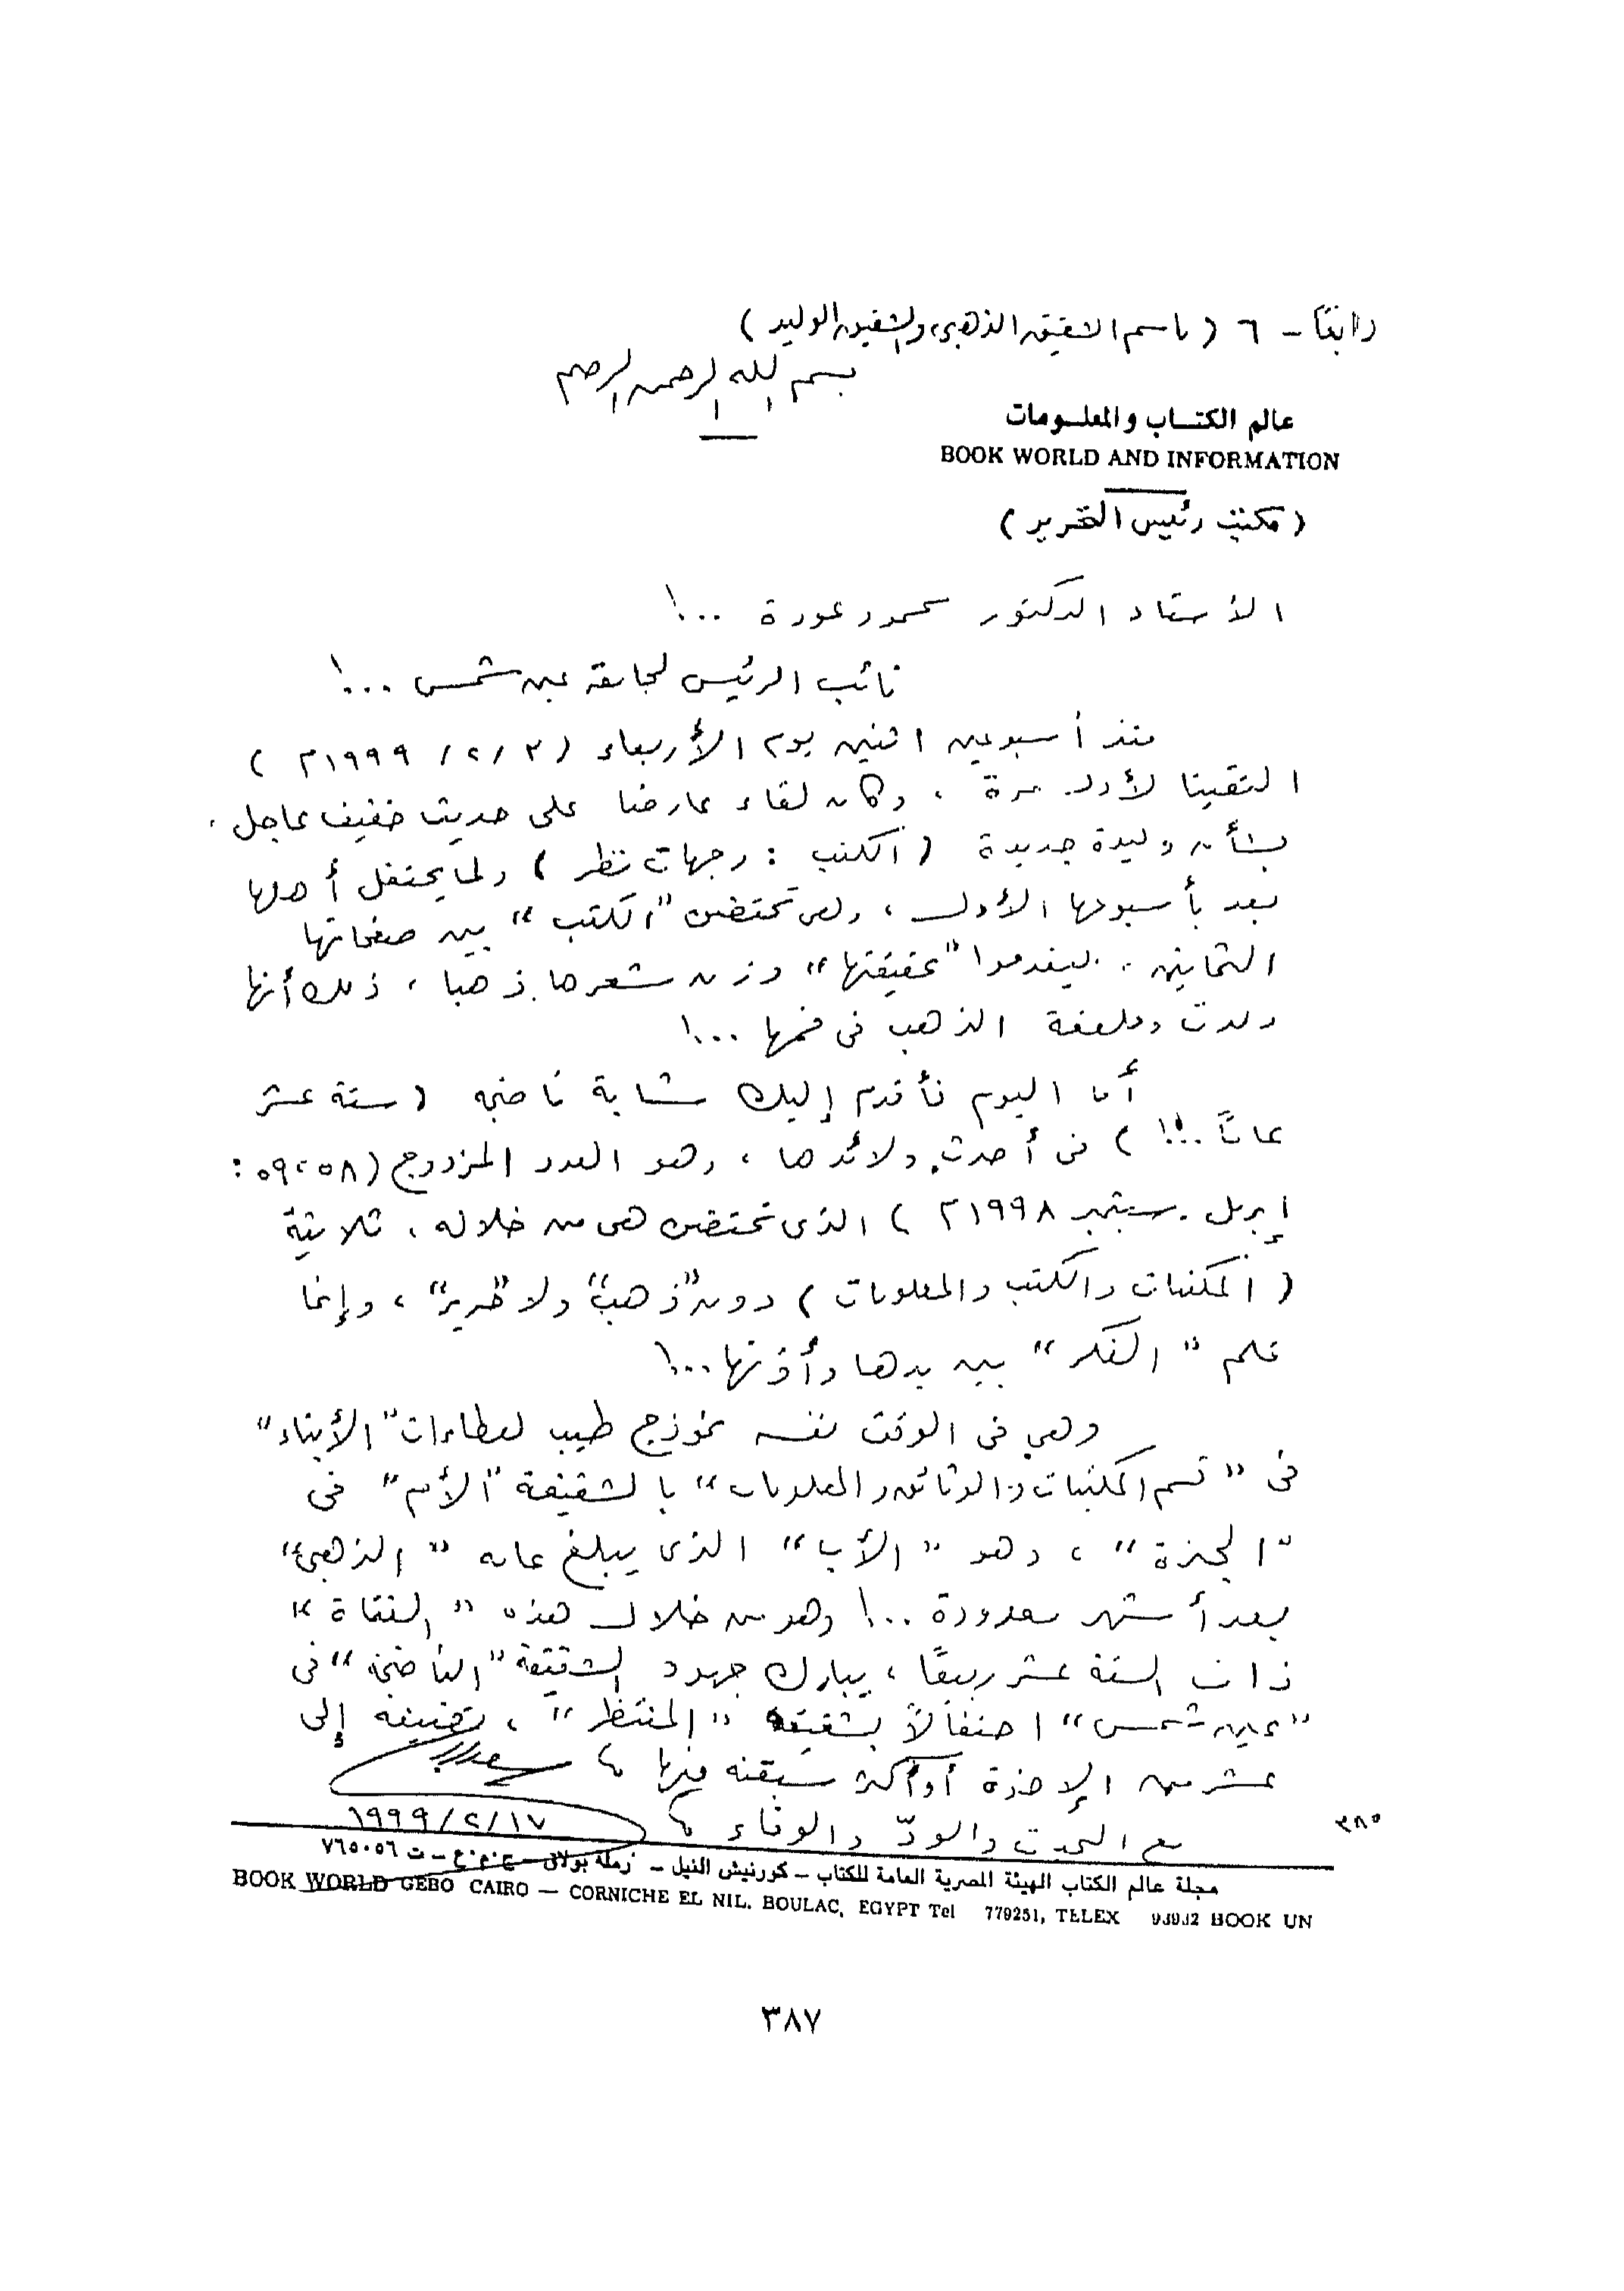 رابعًا - ٦ ( باسم الشقيق الذهبى، والشقيق الوليد )
بسم الله الرحمن الرحيم
عالم الكتـــاب والمعلـــومات
BOOK WORLD AND INFORMATION
( مكتب رئيس التحرير )
الأستاذ الدكتور محمود عودة ...!
نائب الرئيس لجامعة عين شمس ...!
منذ أسبوعين اثنين يوم الأربعاء ( ٣ / ٢ / ١٩٩٩م )
التقينا لأول مرة ، وكان لقاء عارضا على حديث خفيف عاجل ،
بشأن وليدة جديدة ( الكتب : وجهات نظر ) ولما يحتفل أهلها
بعد بأسبوعها الأول ، وهى تحتضن "الكتب" بين صفحاتها
الثمانين .. ليقدموا "عقيقتها" وزن شعرها ذهبا ، ذلك أنها
ولدت وملعقة الذهب فى فمها ...!
أما اليوم فأقدم إليك شابة ناضجة ( ستة عشر
عامًا ..!! ) فى أحدث ولائدها ، وهو العدد المزدوج ( ٥٨ ، ٥٩ :
إبريل - سبتمبر ١٩٩٨م ) الذى تحتضن هى من خلاله ، ثلاثية
( المكتبات والكتب والمعلومات ) دون "ذهب" ولا "حرير" ، وإنما
قلم "الفكر" بين يدها وأذنها ...!
وهي فى الوقت نفسه نموذج طيب لعطاءات "الأبناء"
فى "قسم المكتبات والوثائق والمعلومات" بالشقيقة "الأم" فى
"الجيزة" ، وهو "الأب" الذى يبلغ عامه "الذهبى"
بعد أشهر معدودة ...! وهو من خلال هذه "الفتاة"
ذات الستة عشر ربيعًا ، يبارك جهود الشقيقة "الناضجة" فى
"عين شمس" احتفالاً بشقيقه "المنتظر" ، تضيفه إلى
عشر من الإخوة أو أكثر سبقنه فيها ،،
مع الحب والودّ والوفاء ،،
١٧ / ٢ / ١٩٩٩
٣٨٥
مجلة عالم الكتاب الهيئة المصرية العامة للكتاب - كورنيش النيل - رملة بولاق - ج.م.ع - ت ٧٦٥٠٥٦
BOOK WORLD GEBO CAIRO — CORNICHE EL NIL. BOULAC, EGYPT Tel 779251, TELEX 93932 BOOK UN
٣٨٧